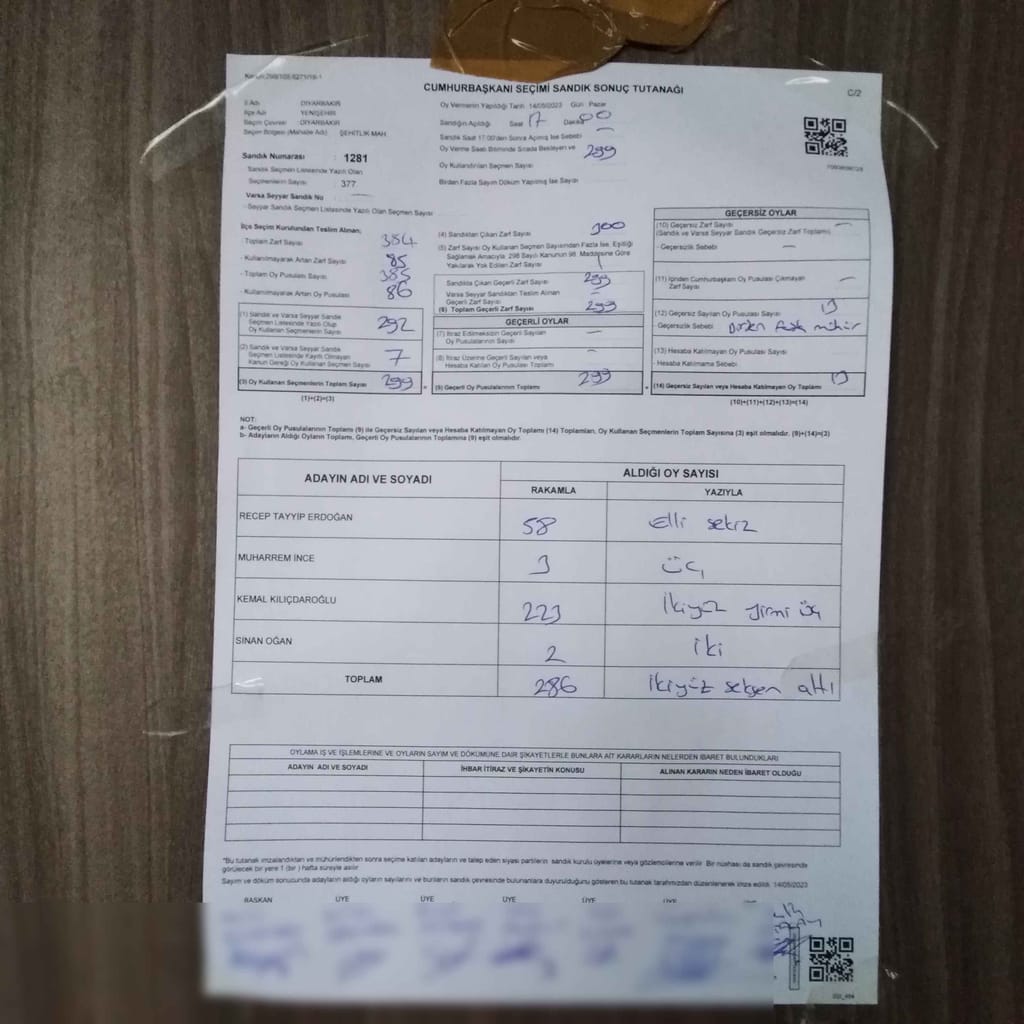 CUMHURBAŞKANI SEÇİMİ SANDIK SONUÇ TUTANAĞI
C/2
İl Adı DİYARBAKIR
İlçe Adı YENİŞEHİR
Seçim Çevresi DİYARBAKIR
Seçim Bölgesi (Mahalle Adı) ŞEHİTLİK MAH.
Sandık Numarası : 1281
Sandık Seçmen Listesinde Yazılı Olan
Seçmenlerin Sayısı : 377
Varsa Seyyar Sandık No
- Seyyar Sandık Seçmen Listesinde Yazılı Olan Seçmen Sayısı
Oy Vermenin Yapıldığı Tarih 14/05/2023 Gün Pazar
Sandığın Açıldığı Saat 17 Dakika 00
Sandık Saat 17:00'den Sonra Açılmış İse Sebebi
Oy Verme Saati Bitiminde Sırada Bekleyen ve 299
Oy Kullandırılan Seçmen Sayısı
Birden Fazla Sayım Döküm Yapılmış İse Sayısı
İlçe Seçim Kurulundan Teslim Alınan;
- Toplam Zarf Sayısı 384
- Kullanılmayarak Artan Zarf Sayısı 85
- Toplam Oy Pusulası Sayısı 385
- Kullanılmayarak Artan Oy Pusulası 86
(1) Sandık ve Varsa Seyyar Sandık
Seçmen Listesinde Yazılı Olup
Oy Kullanan Seçmenlerin Sayısı 292
(2) Sandık ve Varsa Seyyar Sandık
Seçmen Listesinde Kayıtlı Olmayan
Kanun Gereği Oy Kullanan Seçmen Sayısı 7
(3) Oy Kullanan Seçmenlerin Toplam Sayısı 299
(1)+(2)=(3)
(4) Sandıktan Çıkan Zarf Sayısı 300
(5) Zarf Sayısı Oy Kullanan Seçmen Sayısından Fazla İse, Eşitliği
Sağlamak Amacıyla 298 Sayılı Kanunun 98. Maddesine Göre
Yakılarak Yok Edilen Zarf Sayısı 1
Sandıkta Çıkan Geçerli Zarf Sayısı 299
Varsa Seyyar Sandıktan Teslim Alınan
Geçerli Zarf Sayısı
(6) Toplam Geçerli Zarf Sayısı 299
GEÇERLİ OYLAR
(7) İtiraz Edilmeksizin Geçerli Sayılan
Oy Pusulalarının Sayısı
(8) İtiraz Üzerine Geçerli Sayılan veya
Hesaba Katılan Oy Pusulası Toplamı
(9) Geçerli Oy Pusulalarının Toplamı 299
GEÇERSİZ OYLAR
(10) Geçersiz Zarf Sayısı
(Sandık ve Varsa Seyyar Sandık Geçersiz Zarf Toplamı)
- Geçersizlik Sebebi
(11) İçinden Cumhurbaşkanı Oy Pusulası Çıkmayan
Zarf Sayısı
(12) Geçersiz Sayılan Oy Pusulası Sayısı 13
- Geçersizlik Sebebi Birden fazla mühür
(13) Hesaba Katılmayan Oy Pusulası Sayısı
- Hesaba Katılmama Sebebi
(14) Geçersiz Sayılan veya Hesaba Katılmayan Oy Toplamı 13
(10)+(11)+(12)+(13)=(14)
NOT:
a- Geçerli Oy Pusulalarının Toplamı (9) ile Geçersiz Sayılan veya Hesaba Katılmayan Oy Toplamı (14) Toplamları, Oy Kullanan Seçmenlerin Toplam Sayısına (3) eşit olmalıdır. (9)+(14)=(3)
b- Adayların Aldığı Oyların Toplamı, Geçerli Oy Pusulalarının Toplamına (9) eşit olmalıdır.
ADAYIN ADI VE SOYADI ALDIĞI OY SAYISI
RAKAMLA YAZIYLA
RECEP TAYYİP ERDOĞAN 58 Elli sekiz
MUHARREM İNCE 3 üç
KEMAL KILIÇDAROĞLU 223 İkiyüz yirmi üç
SİNAN OĞAN 2 iki
TOPLAM 286 İkiyüz seksen altı
OYLAMA İŞ VE İŞLEMLERİNE VE OYLARIN SAYIM VE DÖKÜMÜNE DAİR ŞİKAYETLERLE BUNLARA AİT KARARLARIN NELERDEN İBARET BULUNDUKLARI
ADAYIN ADI VE SOYADI İHBAR İTİRAZ VE ŞİKAYETİN KONUSU ALINAN KARARIN NEDEN İBARET OLDUĞU
*Bu tutanak imzalandıktan ve mühürlendikten sonra seçime katılan adayların ve talep eden siyasi partilerin sandık kurulu üyelerine veya gözlemcilerine verilir. Bir nüshası da sandık çevresinde
görülecek bir yere 1 (bir) hafta süreyle asılır.
Sayım ve döküm sonucunda adayların aldığı oyların sayılarını ve bunların sandık çevresinde bulunanlara duyurulduğunu gösteren bu tutanak tarafımızdan düzenlenerek imza edildi. 14/05/2023
BAŞKAN ÜYE ÜYE ÜYE ÜYE ÜYE ÜYE